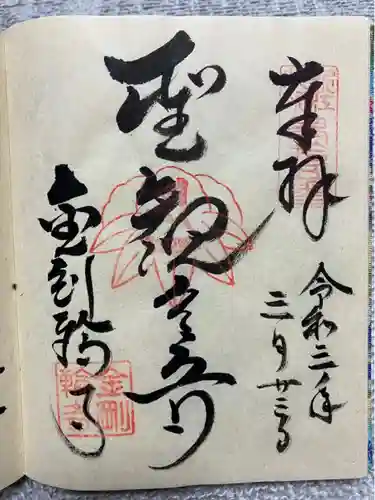 奉拝
令和三年
三月廿三日
聖観世音
金剛輪寺
金剛
輪寺